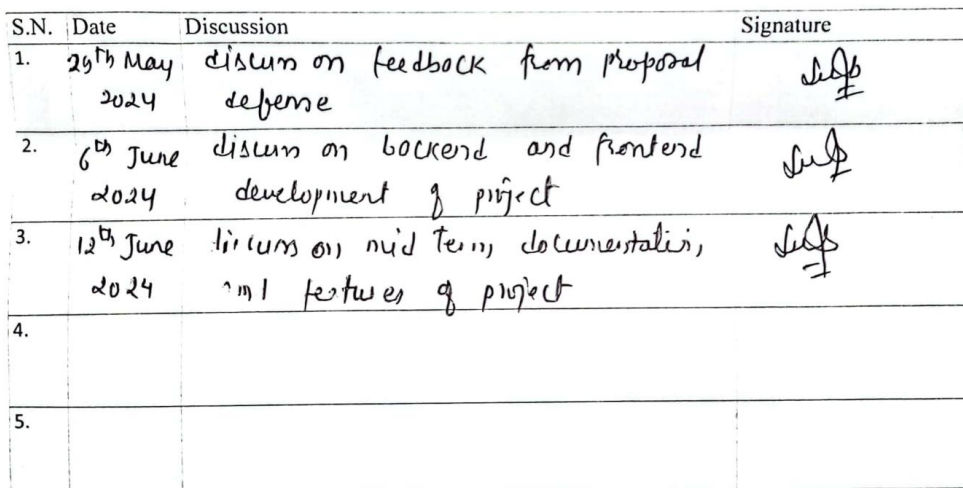 S.N. Date Discussion Signature
1. 29th May discuss on feedback from proposal
2024 defense
2. 6th June discuss on backend and frontend
2024 development of project
3. 12th June discuss on mid term documentation,
2024 and features of project
4.
5.